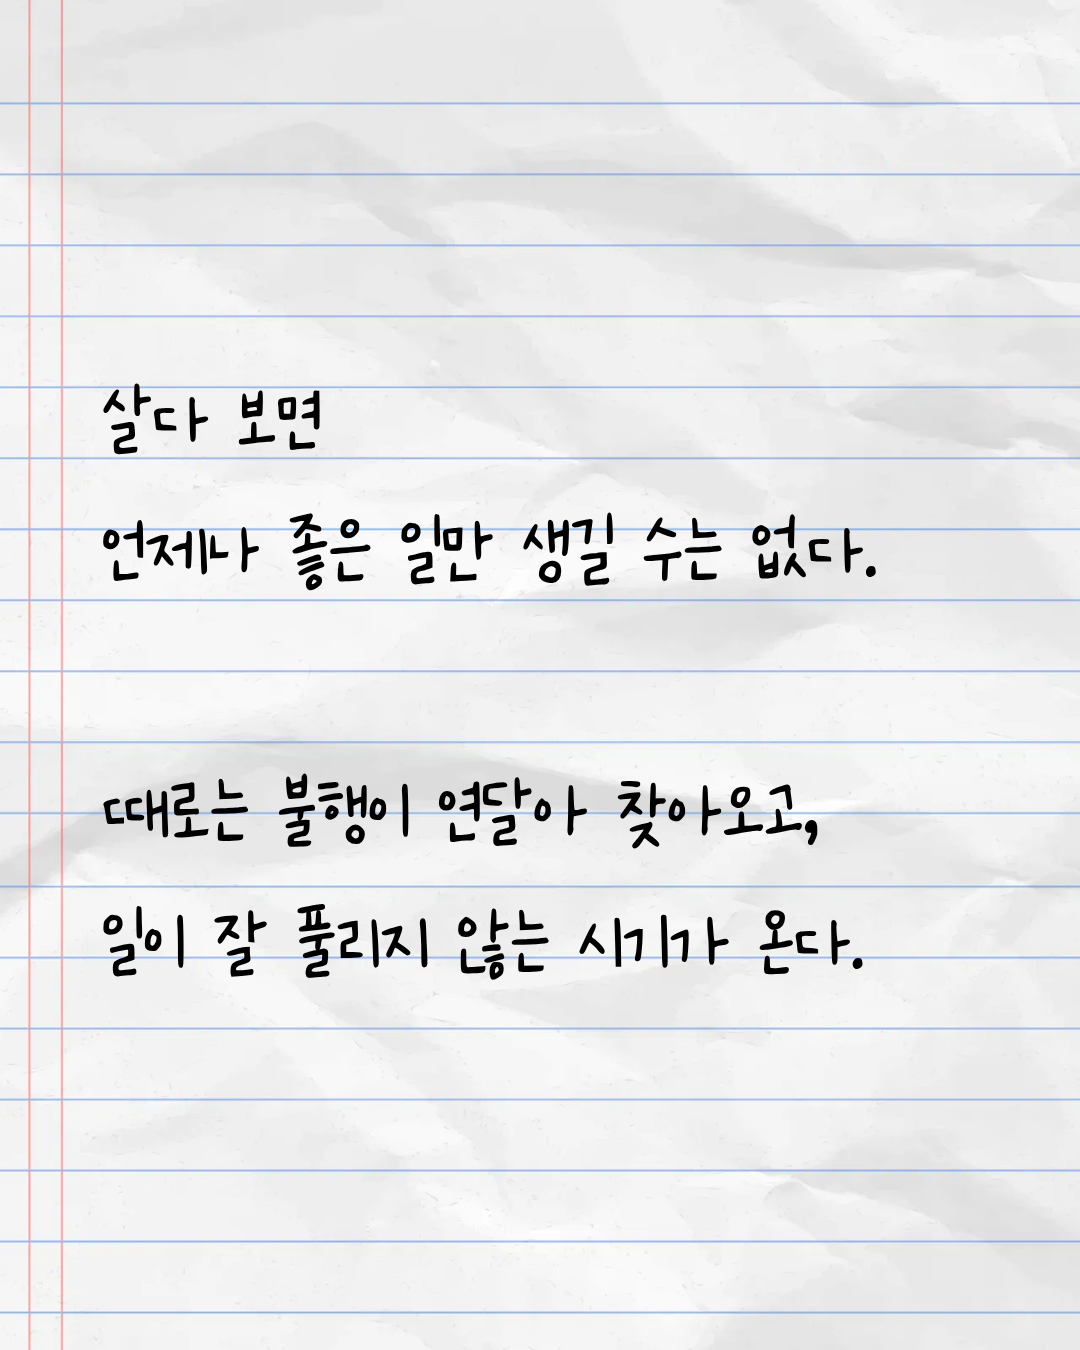 살다 보면
언제나 좋은 일만 생길 수는 없다.
때로는 불행이 연달아 찾아오고,
일이 잘 풀리지 않는 시기가 온다.